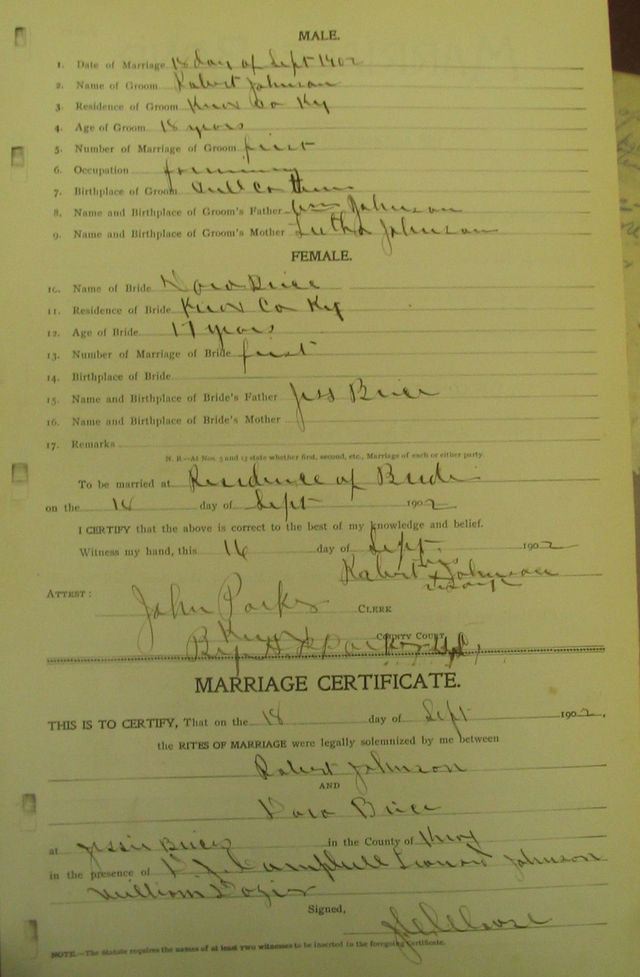 MALE.
1. Date of Marriage 18 day of Sept 1902
2. Name of Groom Robert Johnson
3. Residence of Groom Knox Co Ky
4. Age of Groom 18 years
5. Number of Marriage of Groom first
6. Occupation
7. Birthplace of Groom
8. Name and Birthplace of Groom's Father Johnson
9. Name and Birthplace of Groom's Mother Johnson
FEMALE.
10. Name of Bride
11. Residence of Bride Knox Co Ky
12. Age of Bride 17 years
13. Number of Marriage of Bride first
14. Birthplace of Bride
15. Name and Birthplace of Bride's Father Jess
16. Name and Birthplace of Bride's Mother
17. Remarks
N. B.—At Nos. 5 and 13 state whether first, second, etc., Marriage of each or either party.
To be married at Residence of Bride
on the 18 day of Sept 1902
I CERTIFY that the above is correct to the best of my knowledge and belief.
Witness my hand, this 16 day of Sept. 1902
his
Robert x Johnson
mark
ATTEST: John Parker CLERK
Knox COUNTY COURT
By Parker D.C.
MARRIAGE CERTIFICATE.
THIS IS TO CERTIFY, That on the 18 day of Sept 1902,
the RITES OF MARRIAGE were legally solemnized by me between
Robert Johnson
AND
at Jessie in the County of Knox
in the presence of Campbell Johnson
William
Signed,
NOTE.—The Statute requires the names of at least two witnesses to be inserted in the foregoing Certificate.